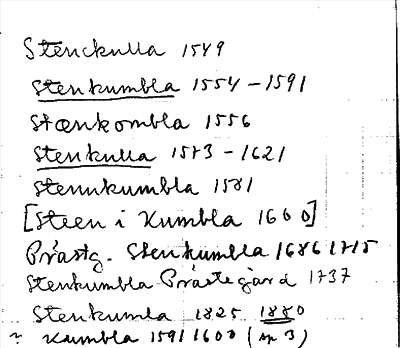 Stenckulla 1549
Stenkumbla 1554-1591
Stænkombla 1556
Stenkulla 1573-1621
Stennkumbla 1581
[Steen i Kumbla 1600]
Prästg. Stenkumbla 1686 1715
Stenkumbla Prästegård 1737
Stenkumla 1825 1880
~ Kumbla 1591 1600 (sp 3)